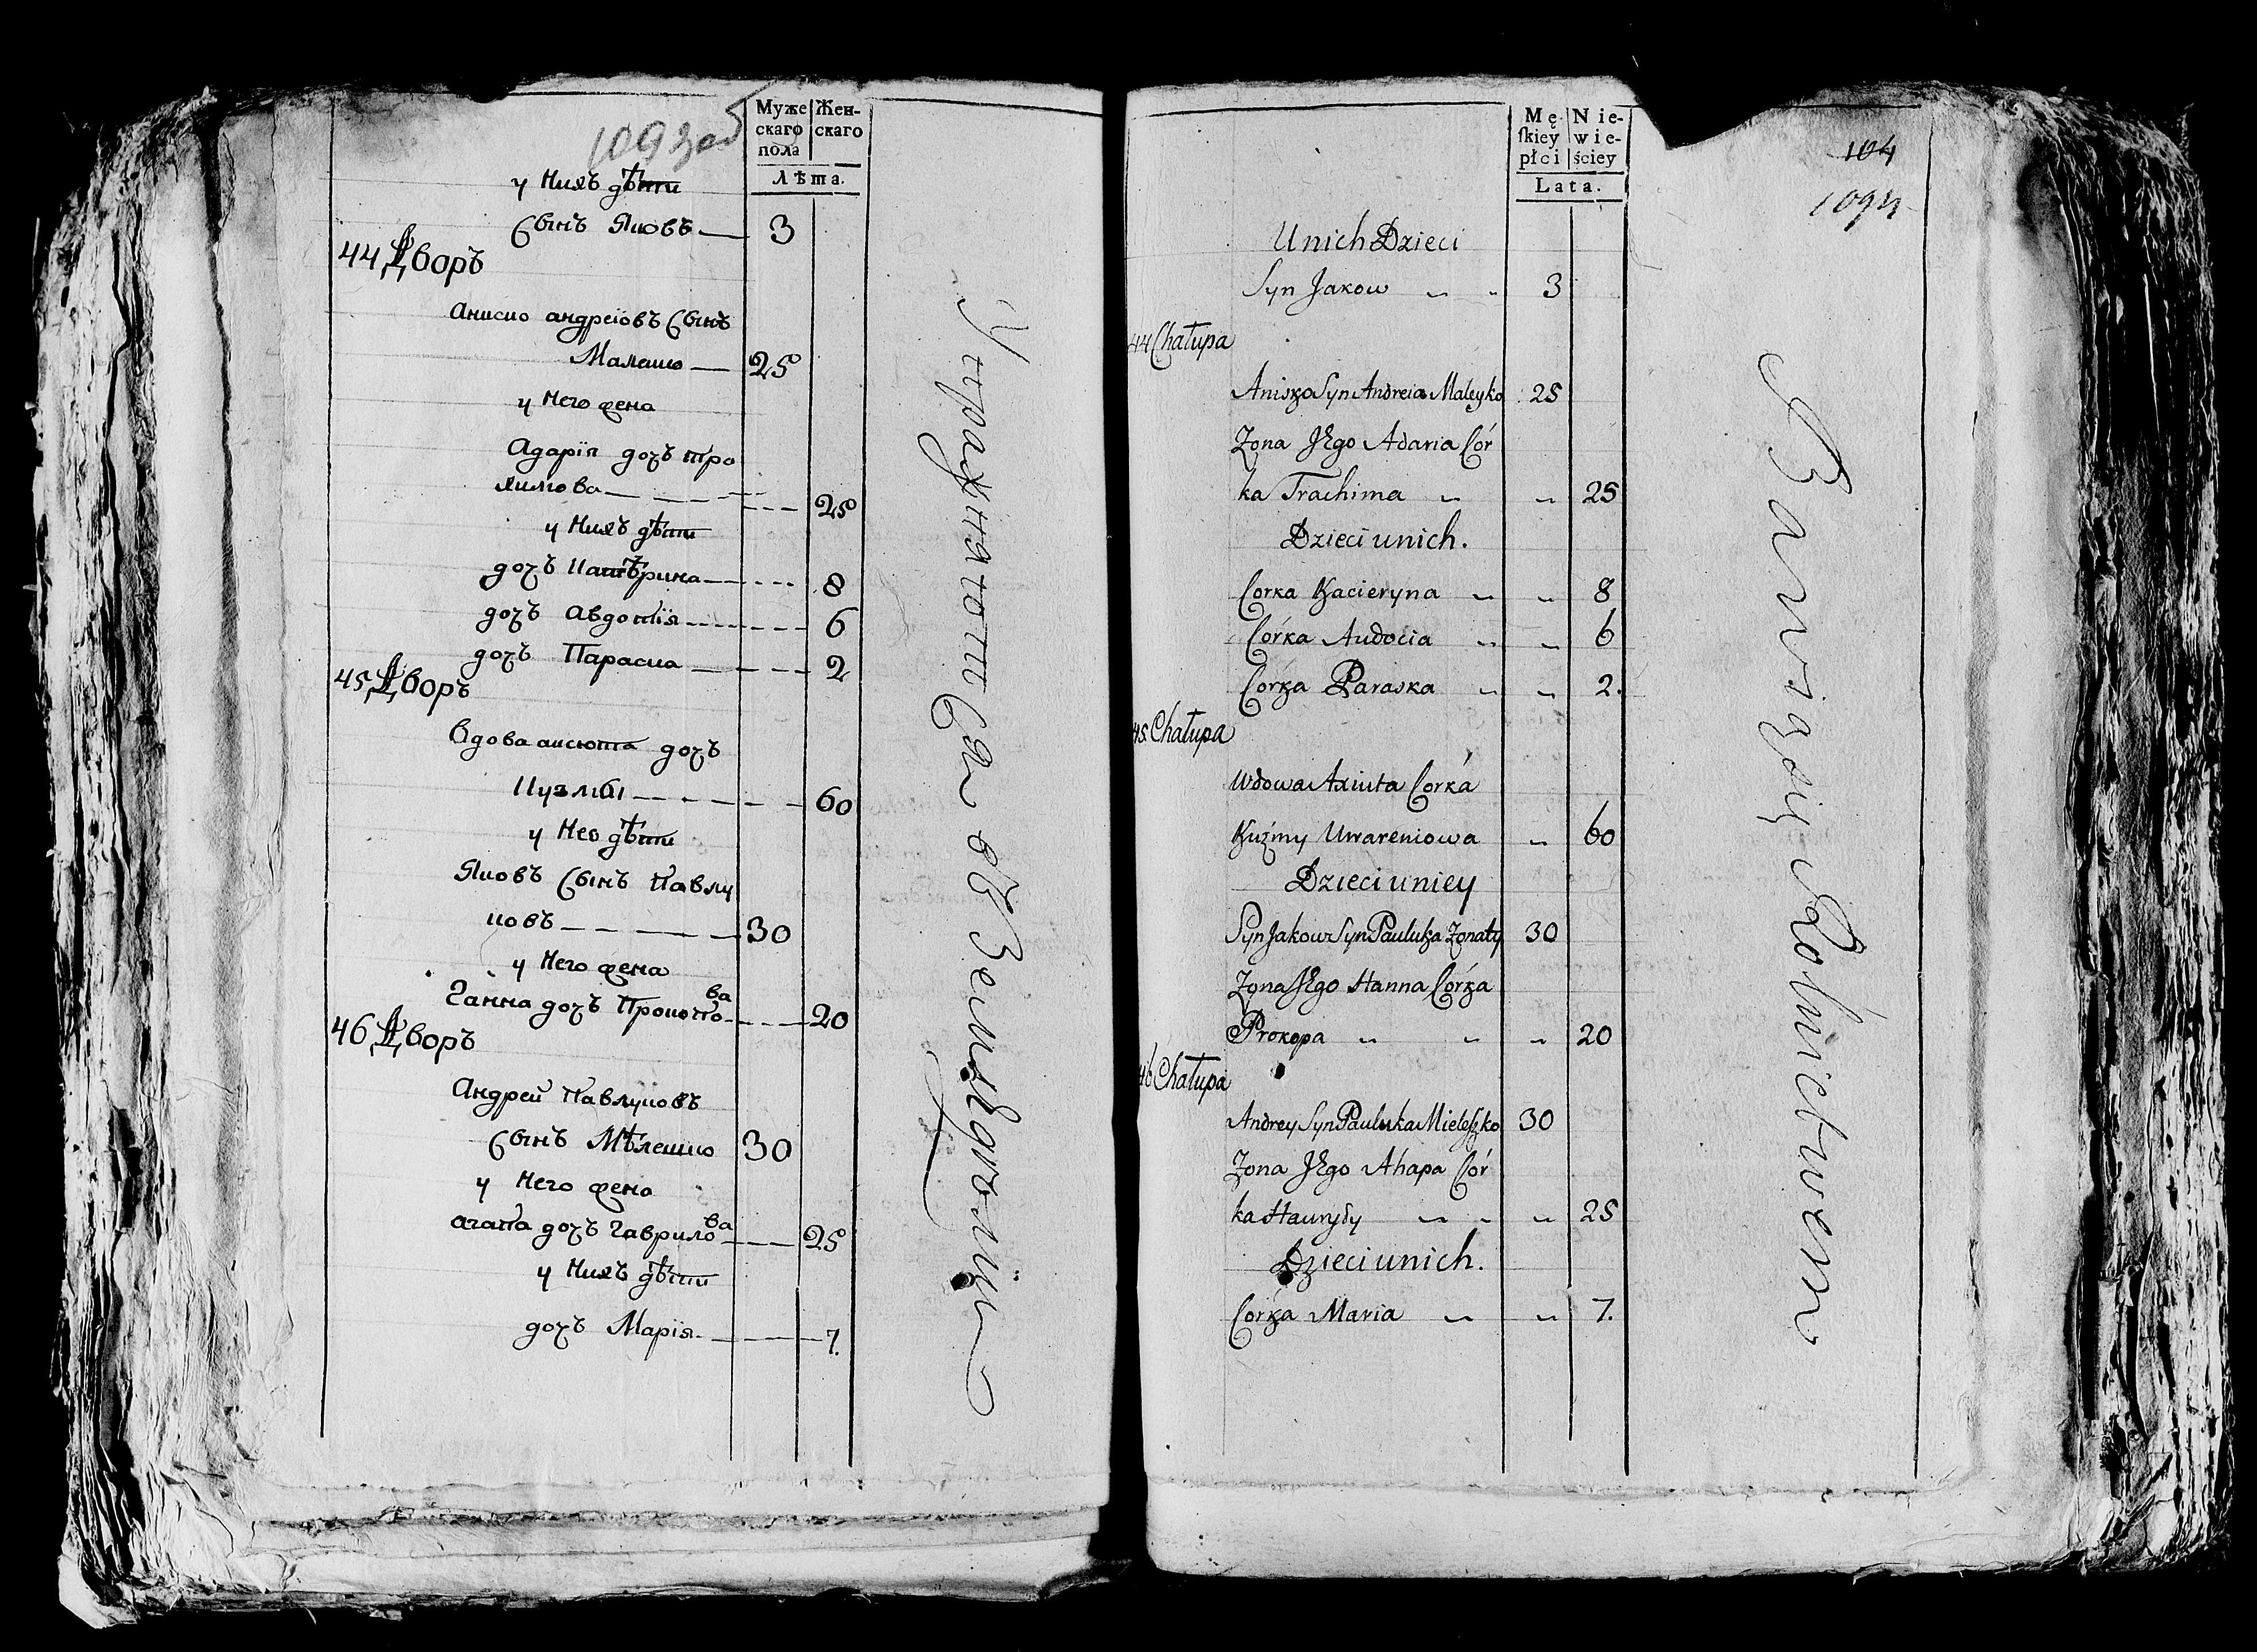 109 заб
Муже
скаго
пола
Жен-
скаго
Лѣта.
у Нихъ дѣти
Сынъ Яковъ 3
44 Дворъ
Аниско андреіовъ Сынъ
Малешко 25
у Него жена
Адарія дочъ тро
химова 25
у Нихъ дѣти
дочъ Катѣрина 8
дочъ Авдотія 6
дочъ Параска 2
45 Дворъ
Вдова аксюта дочъ
Кузмы 60
у Нео дѣти
Яковъ Сынъ Павлу
ковъ 30
у Него жена
Ганна дочъ Прокопова 20
46 Дворъ
Андрей Павлуковъ
Сынъ Мѣлешко 30
у Него жена
агапа дочъ Гаврилова 25
у Нихъ дѣти
дочъ Марія 7.
Упражняются въ Земледѣліи
Mę-
skiey
płci
Nie-
wie-
ściey
Lata.
104
1094
U nich Dzieci
Syn Jakow " " 3
44 Chałupa
Anisko Syn Andreia Maleyko 25
Zona JEgo Adaria Cór
ka Trachima " " 25
Dzieci unich.
Corka Kacieryna " " 8
Córka Audocia " " 6
Córka Paraska " " 2.
45 Chałupa
Wdowa Axiuta Corka
Kuźmy Uwareniowa " 60
Dzieci uniey
Syn Jakow Syn Pauluka Zonaty 30
Zona JEgo Hanna Córka
Prokopa " " " 20
46 Chałupa
Andrey Syn Pauluka Mieleszko 30
Zona JEgo Ahapa Cór
ka Hauryły " " " 25
Dzieci unich.
Corka Maria " " 7.
Bawią się Rolnictwem